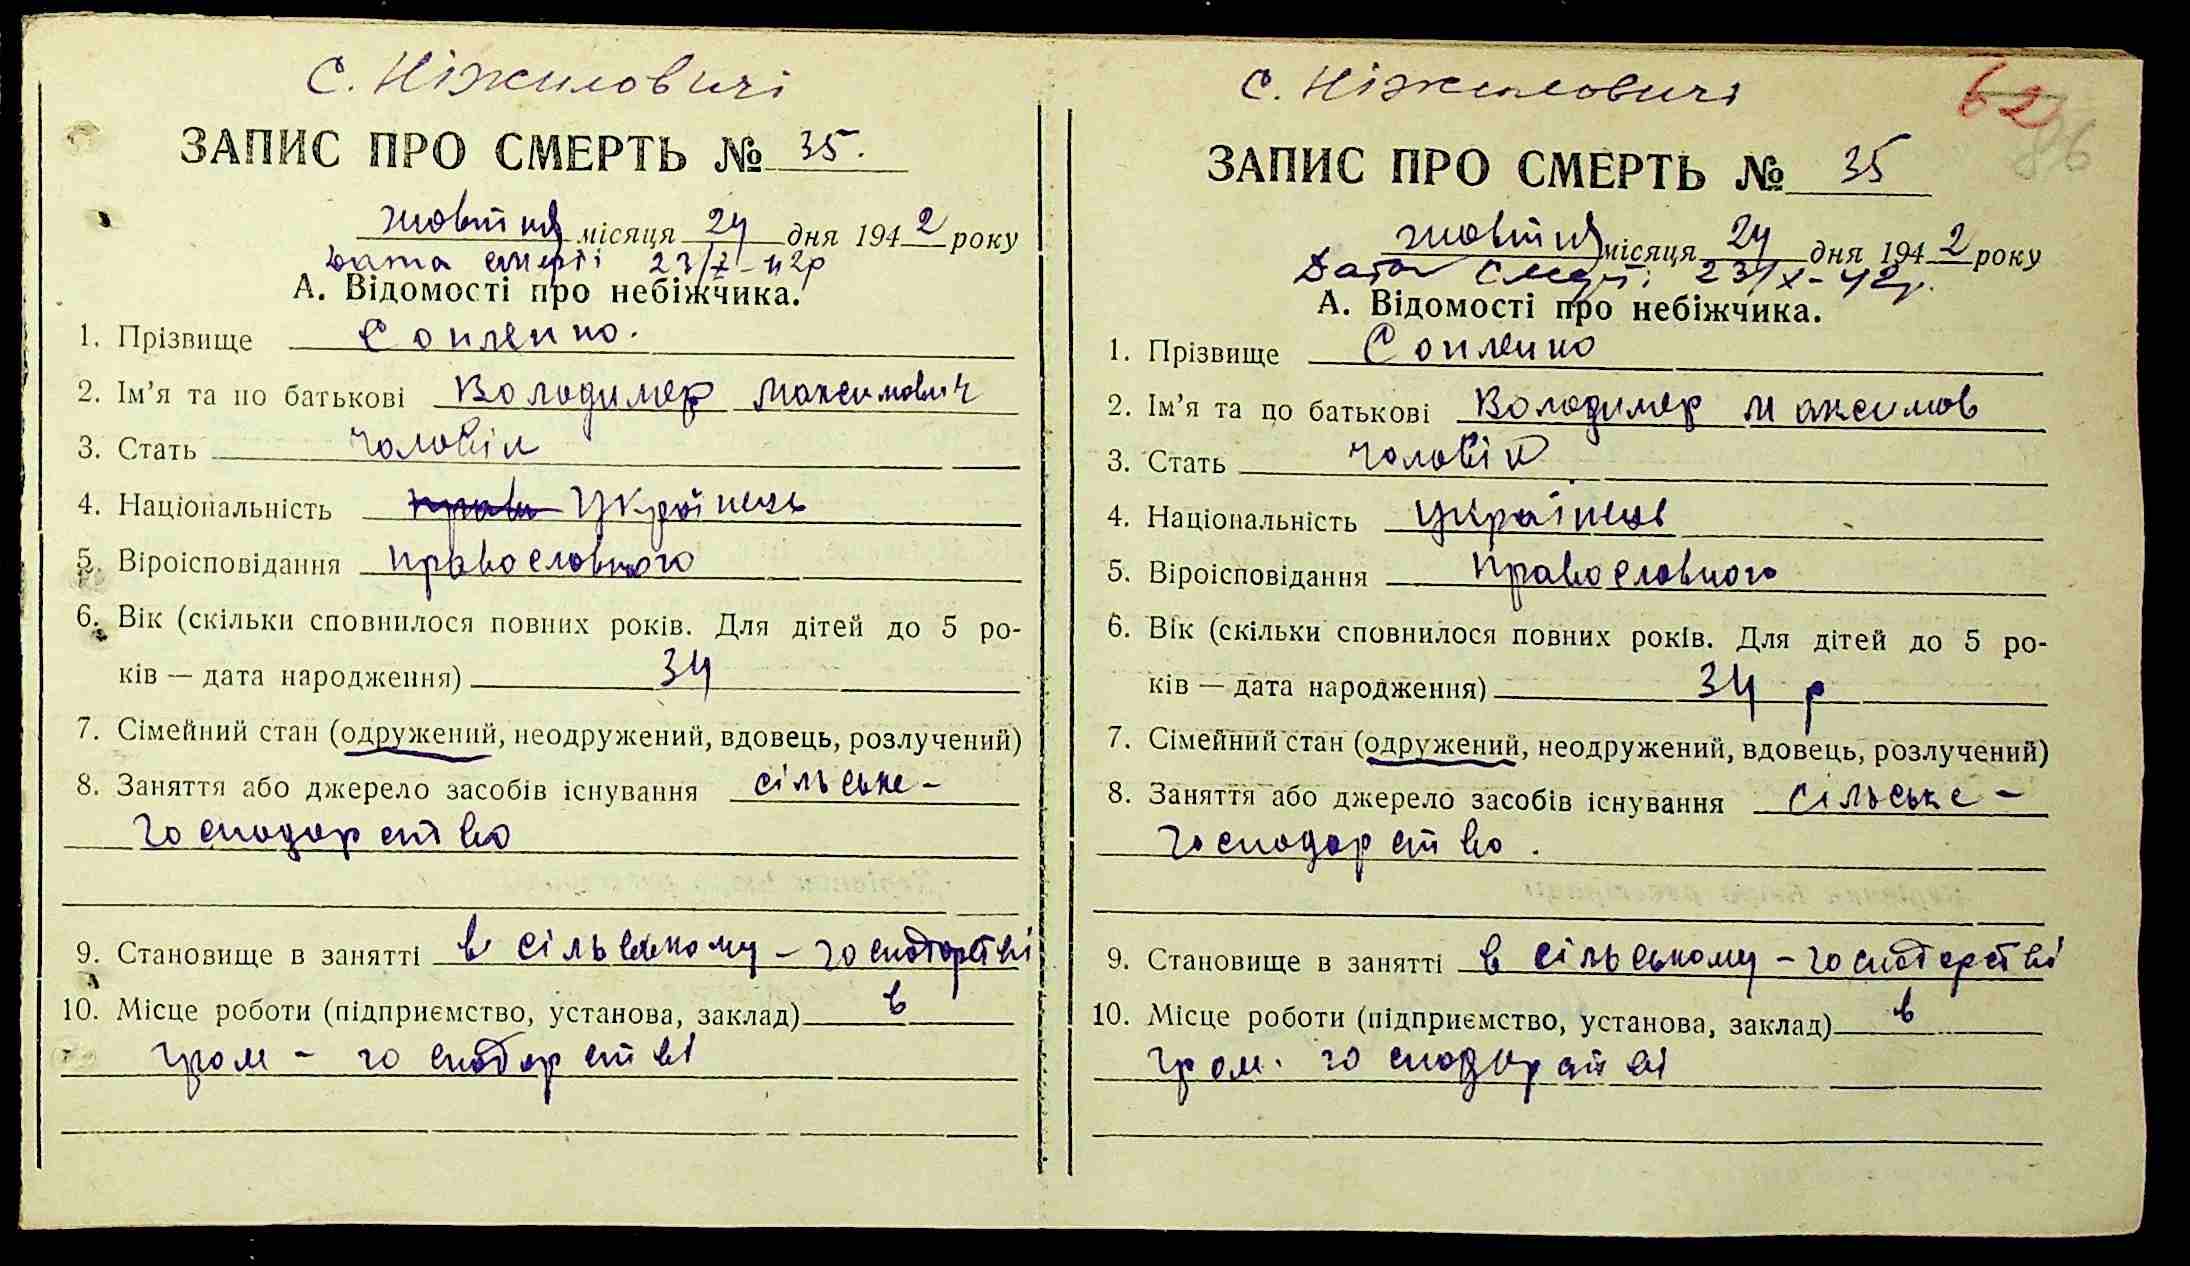 с. Ніжиловичі
ЗАПИС ПРО СМЕРТЬ № 35.
жовтня місяця 24 дня 1942 року
дата смерті 23/X-42р
А. Відомості про небіжчика.
1. Прізвище Сопленко.
2. Ім’я та по батькові Володимер Максимович
3. Стать чоловік
4. Національність Українець
5. Віроісповідання православного
6. Вік (скільки сповнилося повних років. Для дітей до 5 ро-
ків — дата народження) 34
7. Сімейний стан (одружений, неодружений, вдовець, розлучений)
8. Заняття або джерело засобів існування сільське-
господарство
9. Становище в занятті в сільському-господарстві
10. Місце роботи (підприємство, установа, заклад) в
гром-господарстві
с. Ніжиловичі
62
86
ЗАПИС ПРО СМЕРТЬ № 35
жовтня місяця 24 дня 1942 року
Дата смерті 23/X-42р.
А. Відомості про небіжчика.
1. Прізвище Сопленко
2. Ім’я та по батькові Володимер Максимов
3. Стать чоловік
4. Національність Українець
5. Віроісповідання православного
6. Вік (скільки сповнилося повних років. Для дітей до 5 ро-
ків — дата народження) 34 р
7. Сімейний стан (одружений, неодружений, вдовець, розлучений)
8. Заняття або джерело засобів існування сільське-
господарство.
9. Становище в занятті в сільському-господарстві
10. Місце роботи (підприємство, установа, заклад) в
гром. господарстві